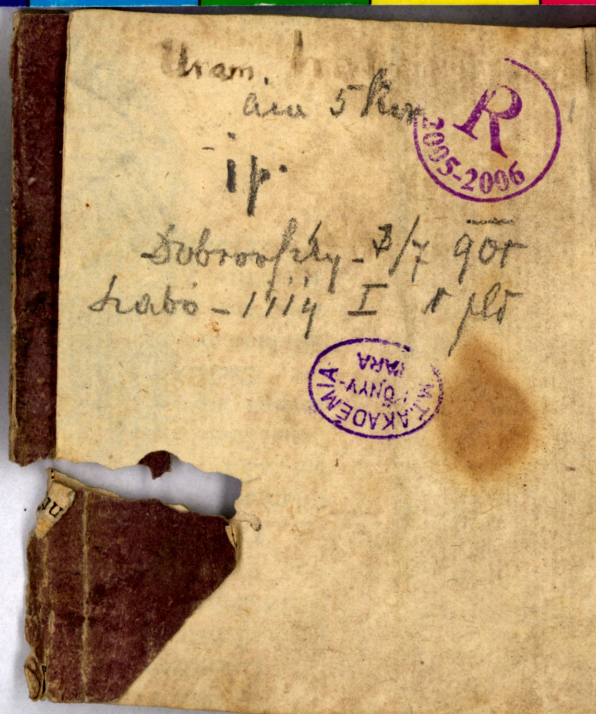 Uram.
ára 5 Kor
R
2005-2006
ip.
Dobrovszky - 3/7 90r
Szabó - 1119 I 1 pld
M.T. AKADÉMIA
KÖNYV-
TÁRA